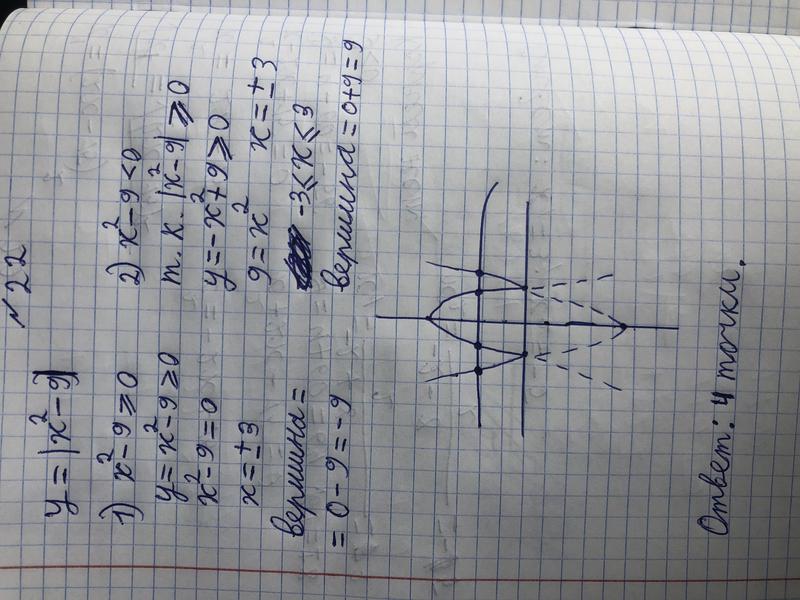 №22
y = |x² - 9|
1) x² - 9 ⩾ 0
y = x² - 9 ⩾ 0
x² - 9 = 0
x = ±3
вершина =
= 0 - 9 = -9
2) x² - 9 < 0
т.к. |x² - 9| ⩾ 0
y = -x² + 9 ⩾ 0
9 = x² x = ±3
-3 ⩽ x ⩽ 3
вершина = 0 + 9 = 9
Ответ: 4 точки.